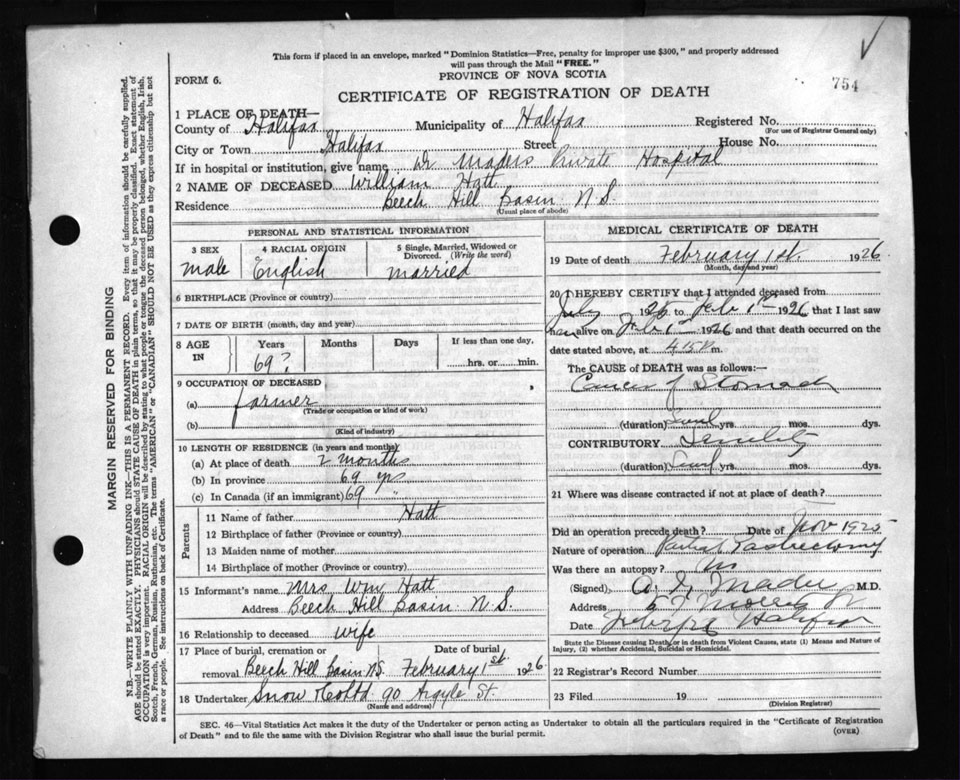 This form if placed in an envelope, marked "Dominion Statistics—Free, penalty for improper use $300," and properly addressed
will pass through the Mail "FREE."
FORM 6.
PROVINCE OF NOVA SCOTIA
754
CERTIFICATE OF REGISTRATION OF DEATH
1 PLACE OF DEATH—
County of Halifax Municipality of Halifax Registered No.
(For use of Registrar General only)
City or Town Halifax Street House No.
If in hospital or institution, give name Dr Maders Private Hospital
2 NAME OF DECEASED William Hatt
Residence Beech Hill Basin N.S.
(Usual place of abode)
PERSONAL AND STATISTICAL INFORMATION
3 SEX
male
4 RACIAL ORIGIN
English
5 Single, Married, Widowed or
Divorced. (Write the word)
married
6 BIRTHPLACE (Province or country)
7 DATE OF BIRTH (month, day and year)
8 AGE
IN
Years Months Days If less than one day,
69? hrs. or min.
9 OCCUPATION OF DECEASED
(a) farmer
(Trade or occupation or kind of work)
(b)
(Kind of industry)
10 LENGTH OF RESIDENCE (in years and months)
(a) At place of death 2 months
(b) In province 69 yrs
(c) In Canada (if an immigrant) 69 "
Parents
11 Name of father Hatt
12 Birthplace of father (Province or country)
13 Maiden name of mother
14 Birthplace of mother (Province or country)
15 Informant's name Mrs Wm Hatt
Address Beech Hill Basin N.S.
16 Relationship to deceased wife
17 Place of burial, cremation or Date of burial
removal Beech Hill Basin NS February 1st 1926
18 Undertaker Snow & Co Ltd 90 Argyle St.
(Name and address)
MEDICAL CERTIFICATE OF DEATH
19 Date of death February 1st. 1926
(Month, day and year)
20 I HEREBY CERTIFY that I attended deceased from
July 1925 to Feb 1st 1926 that I last saw
him alive on Feb 1st 1926 and that death occurred on
date stated above, at 415 P m.
The CAUSE of DEATH was as follows:—
Cancer of Stomach
(duration) Sevrl yrs. mos. dys.
CONTRIBUTORY Senility
(duration) Sevrl yrs. mos. dys.
21 Where was disease contracted if not at place of death?
Did an operation precede death? Date of Nov 1925
Nature of operation Partial Gastrectomy
Was there an autopsy? No
(Signed) A. I. Mader M.D.
Address 57 Morris St
Date Halifax
State the Disease causing Death, or in death from Violent Causes, state (1) Means and Nature of
Injury, (2) whether Accidental, Suicidal or Homicidal.
22 Registrar's Record Number
23 Filed 19
(Division Registrar)
SEC. 46—Vital Statistics Act makes it the duty of the Undertaker or person acting as Undertaker to obtain all the particulars required in the "Certificate of Registration
of Death" and to file the same with the Division Registrar who shall issue the burial permit.
(OVER)
MARGIN RESERVED FOR BINDING
N.B.—WRITE PLAINLY WITH UNFADING INK—THIS IS A PERMANENT RECORD. Every item of information should be carefully supplied.
AGE should be stated EXACTLY. PHYSICIANS should STATE CAUSE OF DEATH in plain terms, so that it may be properly classified. Exact statement of
OCCUPATION is very important. RACIAL ORIGIN will be described by stating to what people or tongue the deceased person belonged, whether English, Irish,
Scotch, French, German, Russian, Ruthenian, etc. The terms "AMERICAN" or "CANADIAN" SHOULD NOT BE USED as they express citizenship but not
a race or people. See instructions on back of Certificate.